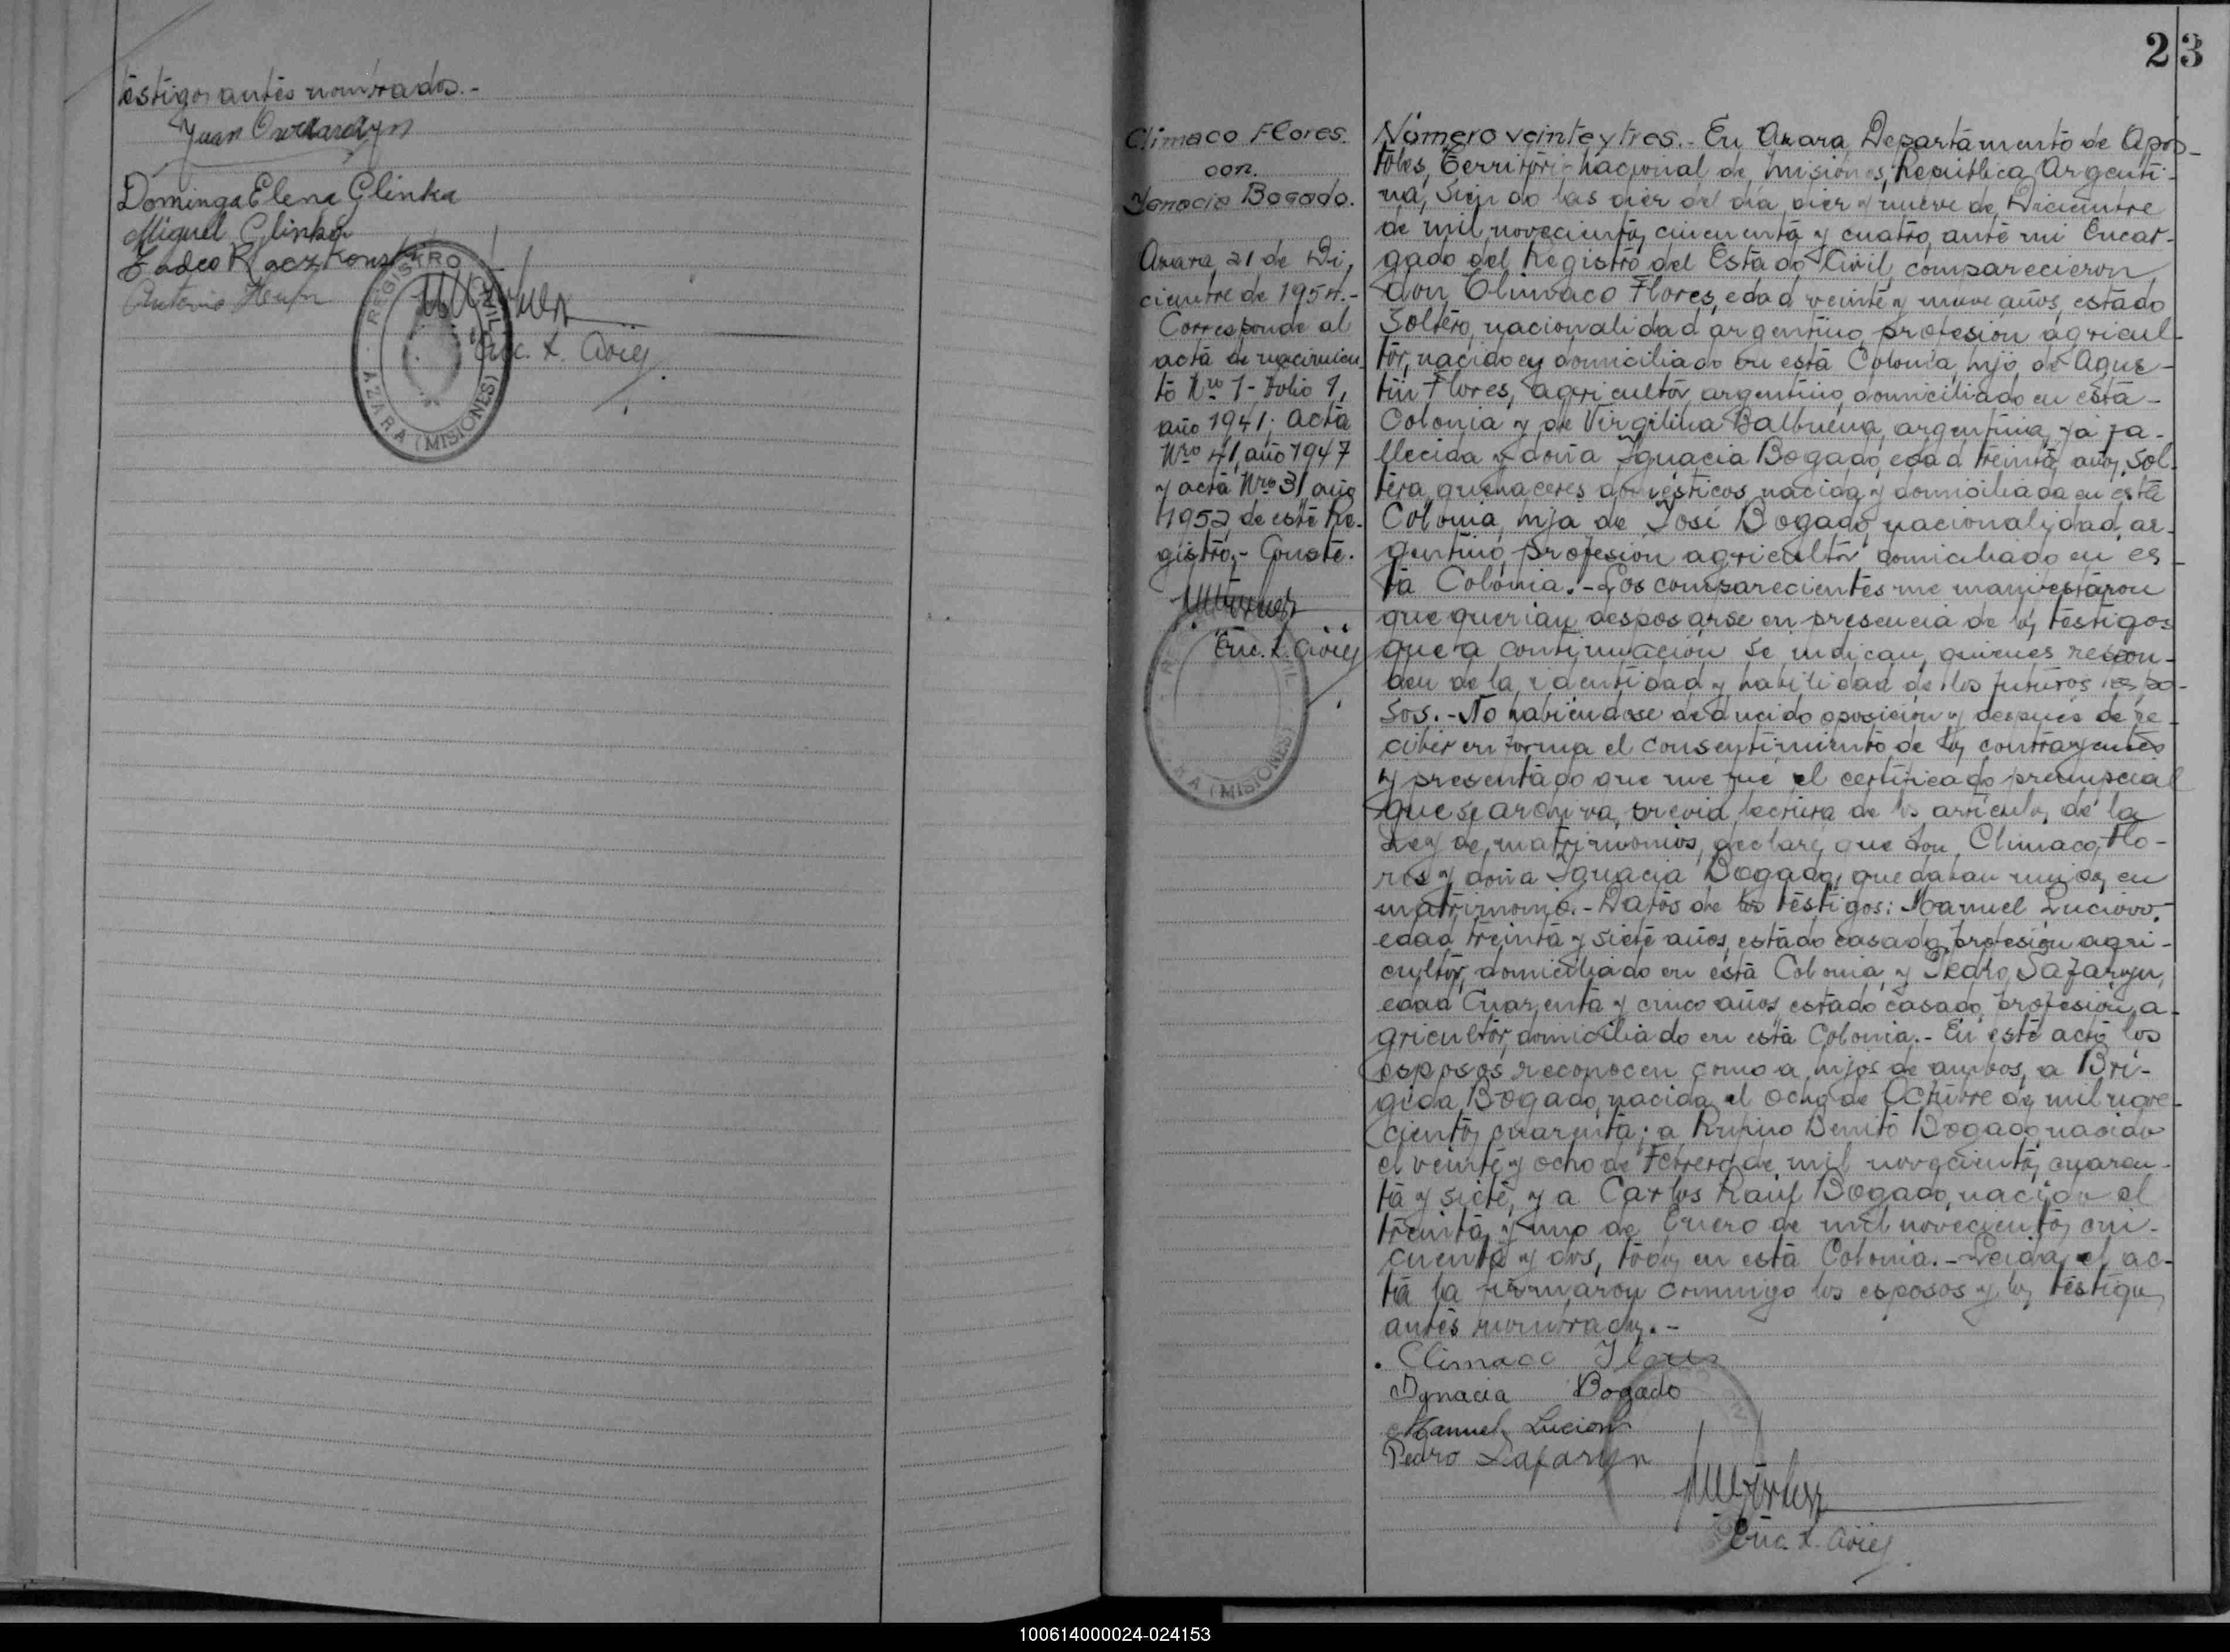 testigos antes nombrados.-
Juan
Dominga Elena Glinka
Miguel Glinka
Tadeo Raczkowski
Antonio
REGISTRO CIVIL
AZARA (MISIONES)
Enc. R. Civil
23
Climaco Flores.
con.
Ignacia Bogado.
Azara, 21 de Di-
ciembre de 1954.-
Corresponde al
acta de nacimien-
to Nro 1- Folio 1,
año 1941; acta
Nro 41, año 1947
y acta Nro 31 año
1952, de este Re-
gistro,- Conste.
Enc. R. Civil
(MISIONES)
Número veinte y tres.- En Azara, Departamento de Apos-
toles, Territorio nacional de Misiones, República Argenti-
na, Siendo las diez del día diez y nueve de Diciembre
de mil novecientos cincuenta y cuatro, ante mi Encar-
gado del Registro del Estado Civil, comparecieron
don Climaco Flores, edad veinte y nueve años, estado
Soltero, nacionalidad argentino, profesión agricul-
tor, nacido y domiciliado en esta Colonia, hijo de Agus-
tín Flores, agricultor, argentino, domiciliado en esta
Colonia y de Virgilina Balbuena, argentina, ya fa-
llecida y doña Ignacia Bogado, edad treinta años, Sol-
tera, quehaceres domésticos, nacida y domiciliada en esta
Colonia, hija de José Bogado, nacionalidad ar-
gentino, profesión agricultor domiciliado en es
ta Colonia.- Los comparecientes me manifestaron
que querían desposarse en presencia de los testigos
que a continuación se indican, quienes respon-
den de la identidad y habilidad de los futuros espo-
sos.- No habiendose deducido oposición y después de re-
cibir en forma el consentimiento de los contrayentes
y presentado que me fué el certificado prenupcial
que se archiva, previa lectura de los artículos de la
Ley de matrimonios, declaré que don Climaco Flo-
res y doña Ignacia Bogado, quedaban unidos en
matrimonio.- Datos de los testigos: Manuel Luciow,
edad treinta y siete años, estado casado, profesión agri-
cultor, domiciliado en esta Colonia, y Pedro Safaryn,
edad Cuarenta y cinco años, estado casado, profesión a-
gricultor, domiciliado en esta Colonia.- En este acto los
esposos reconocen como a hijos de ambos, a Bri-
gida Bogado, nacida el ocho de Octubre de mil nove-
cientos cuarenta; a Rufino Benito Bogado nacido
el veinte y ocho de Febrero de mil novecientos cuaren-
ta y siete, y a Carlos Raúl Bogado, nacido el
treinta y uno de Enero de mil novecientos cin-
cuenta y dos, todos en esta Colonia.- Leida el ac-
ta la firmaron conmigo los esposos y los testigos
antes nombrados.-
Climaco Flores
Ignacia Bogado
Manuel Luciow
Pedro Safaryn
Enc. R. Civil
100614000024-024153